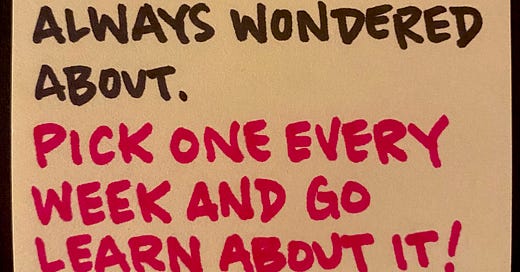 ALWAYS WONDERED
ABOUT.
PICK ONE EVERY
WEEK AND GO
LEARN ABOUT IT!